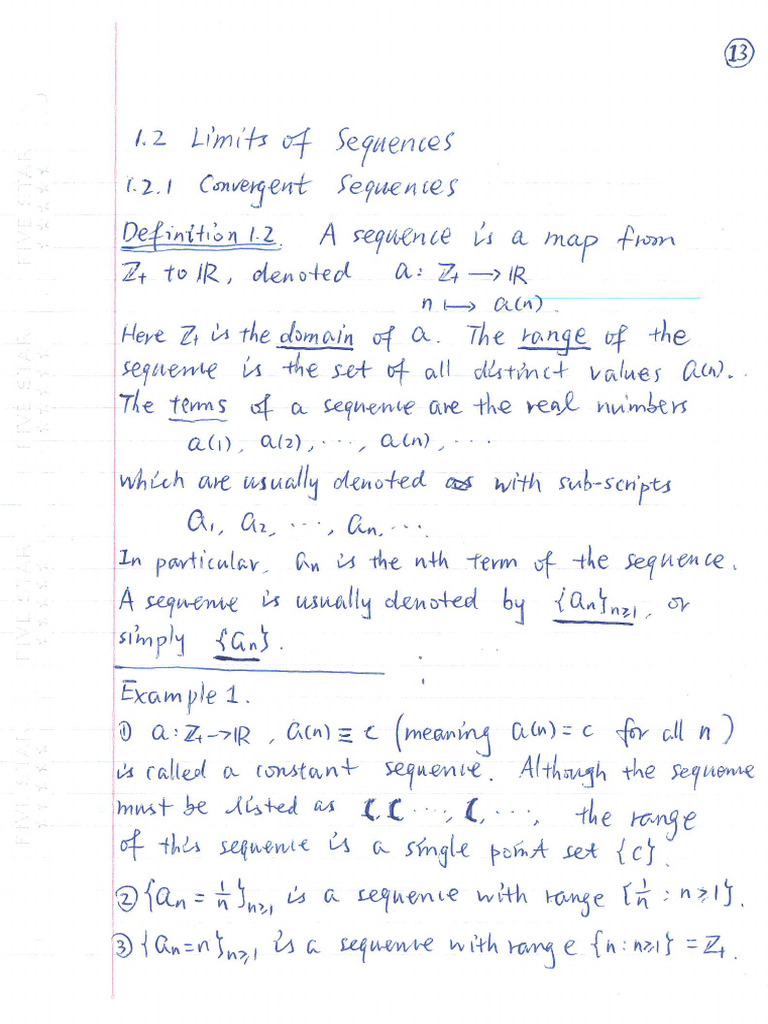 13
1.2 Limits of Sequences
1.2.1 Convergent Sequences
Definition 1.2. A sequence is a map from
ℤ₊ to ℝ, denoted a: ℤ₊ ⟶ ℝ
n ⟼ a(n).
Here ℤ₊ is the domain of a. The range of the
sequence is the set of all distinct values a(n).
The terms of a sequence are the real numbers
a(1), a(2), ···, a(n), ···
which are usually denoted as with sub-scripts
a₁, a₂, ···, aₙ, ···.
In particular, aₙ is the nth term of the sequence.
A sequence is usually denoted by {aₙ}ₙ≥₁, or
simply {aₙ}.
Example 1.
① a: ℤ₊ → ℝ, a(n) ≡ c (meaning a(n) = c for all n)
is called a constant sequence. Although the sequence
must be listed as c, c ···, c, ···, the range
of this sequence is a single point set {c}.
② {aₙ = 1/n}ₙ≥₁ is a sequence with range {1/n : n≥1}.
③ {aₙ = n}ₙ≥₁ is a sequence with range {n : n≥1} = ℤ₊.
FIVE STAR
FIVE STAR
FIVE STAR
FIVE STAR